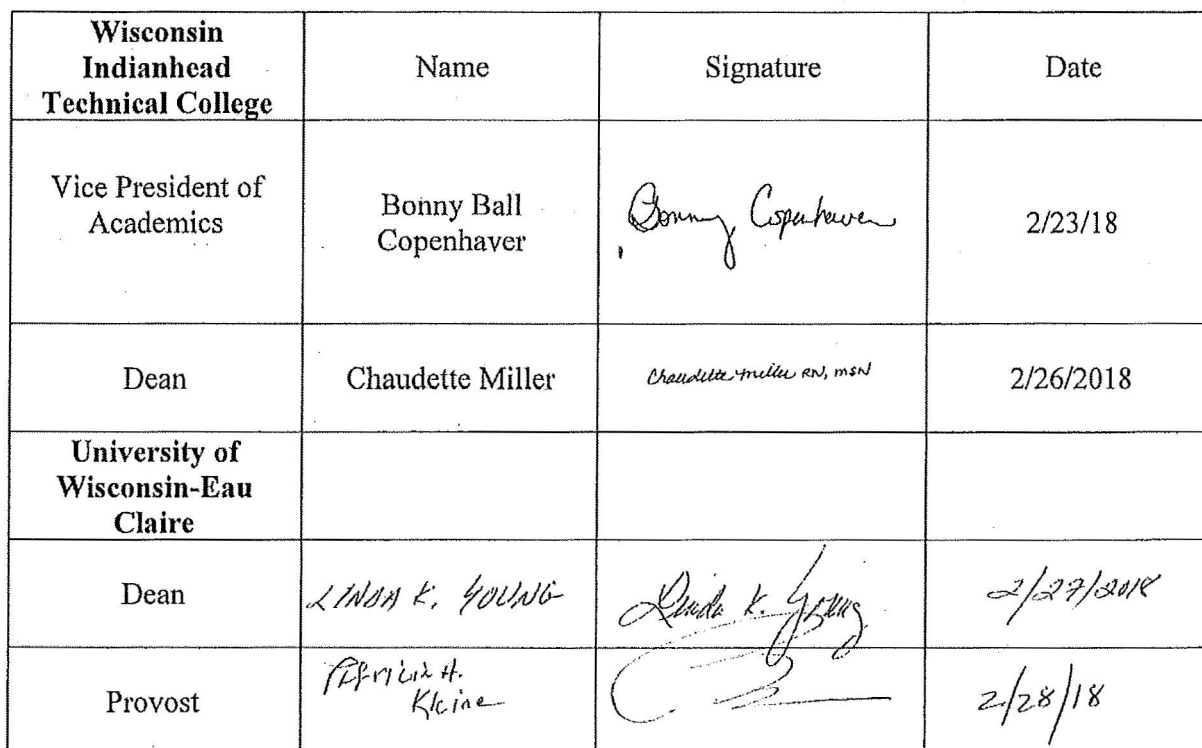 Wisconsin
Indianhead
Technical College
Name
Signature
Date
Vice President of
Academics
Bonny Ball
Copenhaver
Bonny Copenhaver
2/23/18
Dean
Chaudette Miller
Chaudette Miller RN, MSN
2/26/2018
University of
Wisconsin-Eau
Claire
Dean
LINDA K. YOUNG
Linda K. Young
2/27/2018
Provost
Patricia A.
Kleine
2/28/18